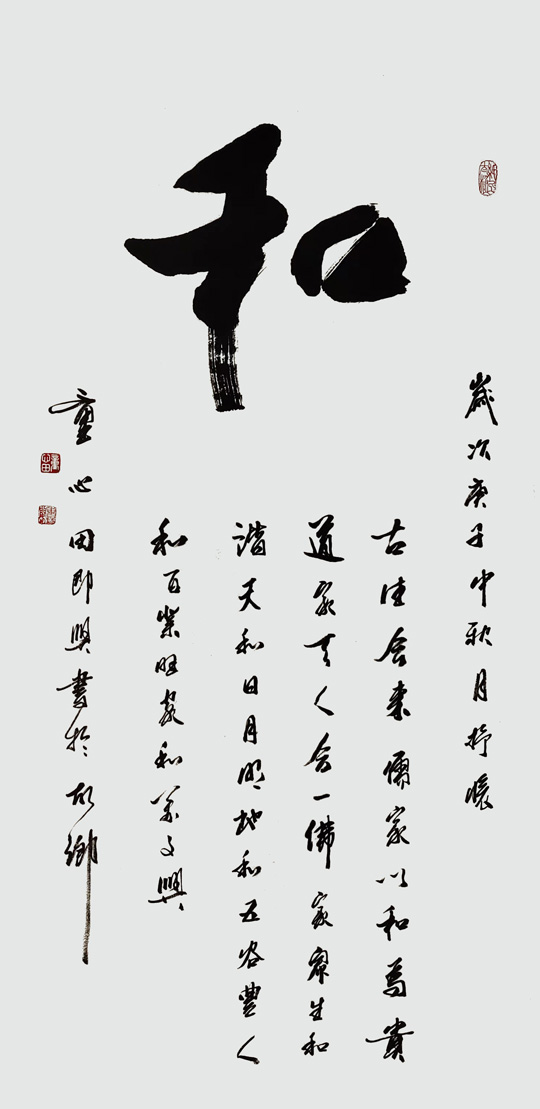 和
歲次庚子中秋月抒懷
古往今來儒家以和為貴
道家天人合一佛家眾生和
諧天和日月明地和五谷豐人
和百業旺家和萬事興
童心田即興書於故鄉